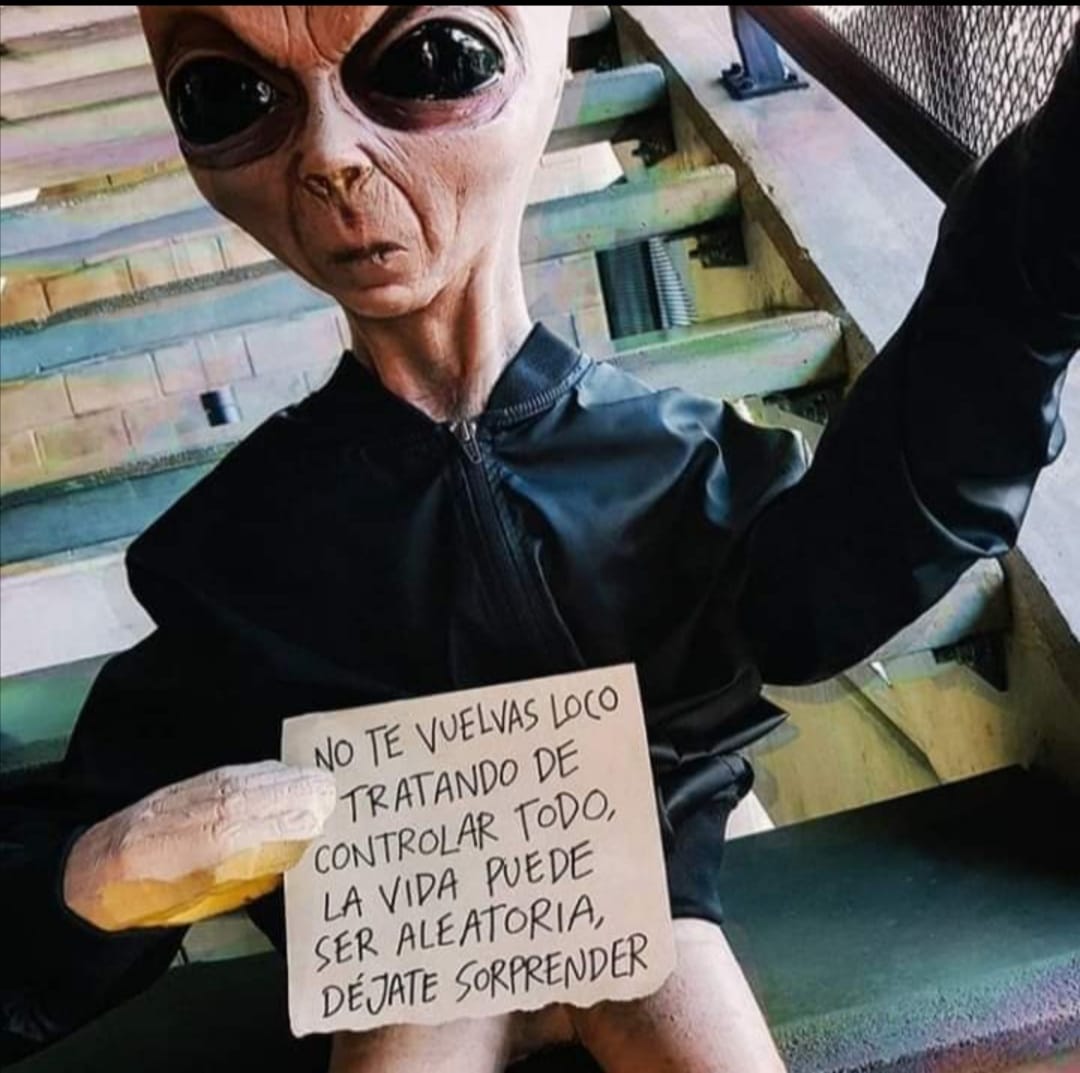 NO TE VUELVAS LOCO
TRATANDO DE
CONTROLAR TODO,
LA VIDA PUEDE
SER ALEATORIA,
DÉJATE SORPRENDER